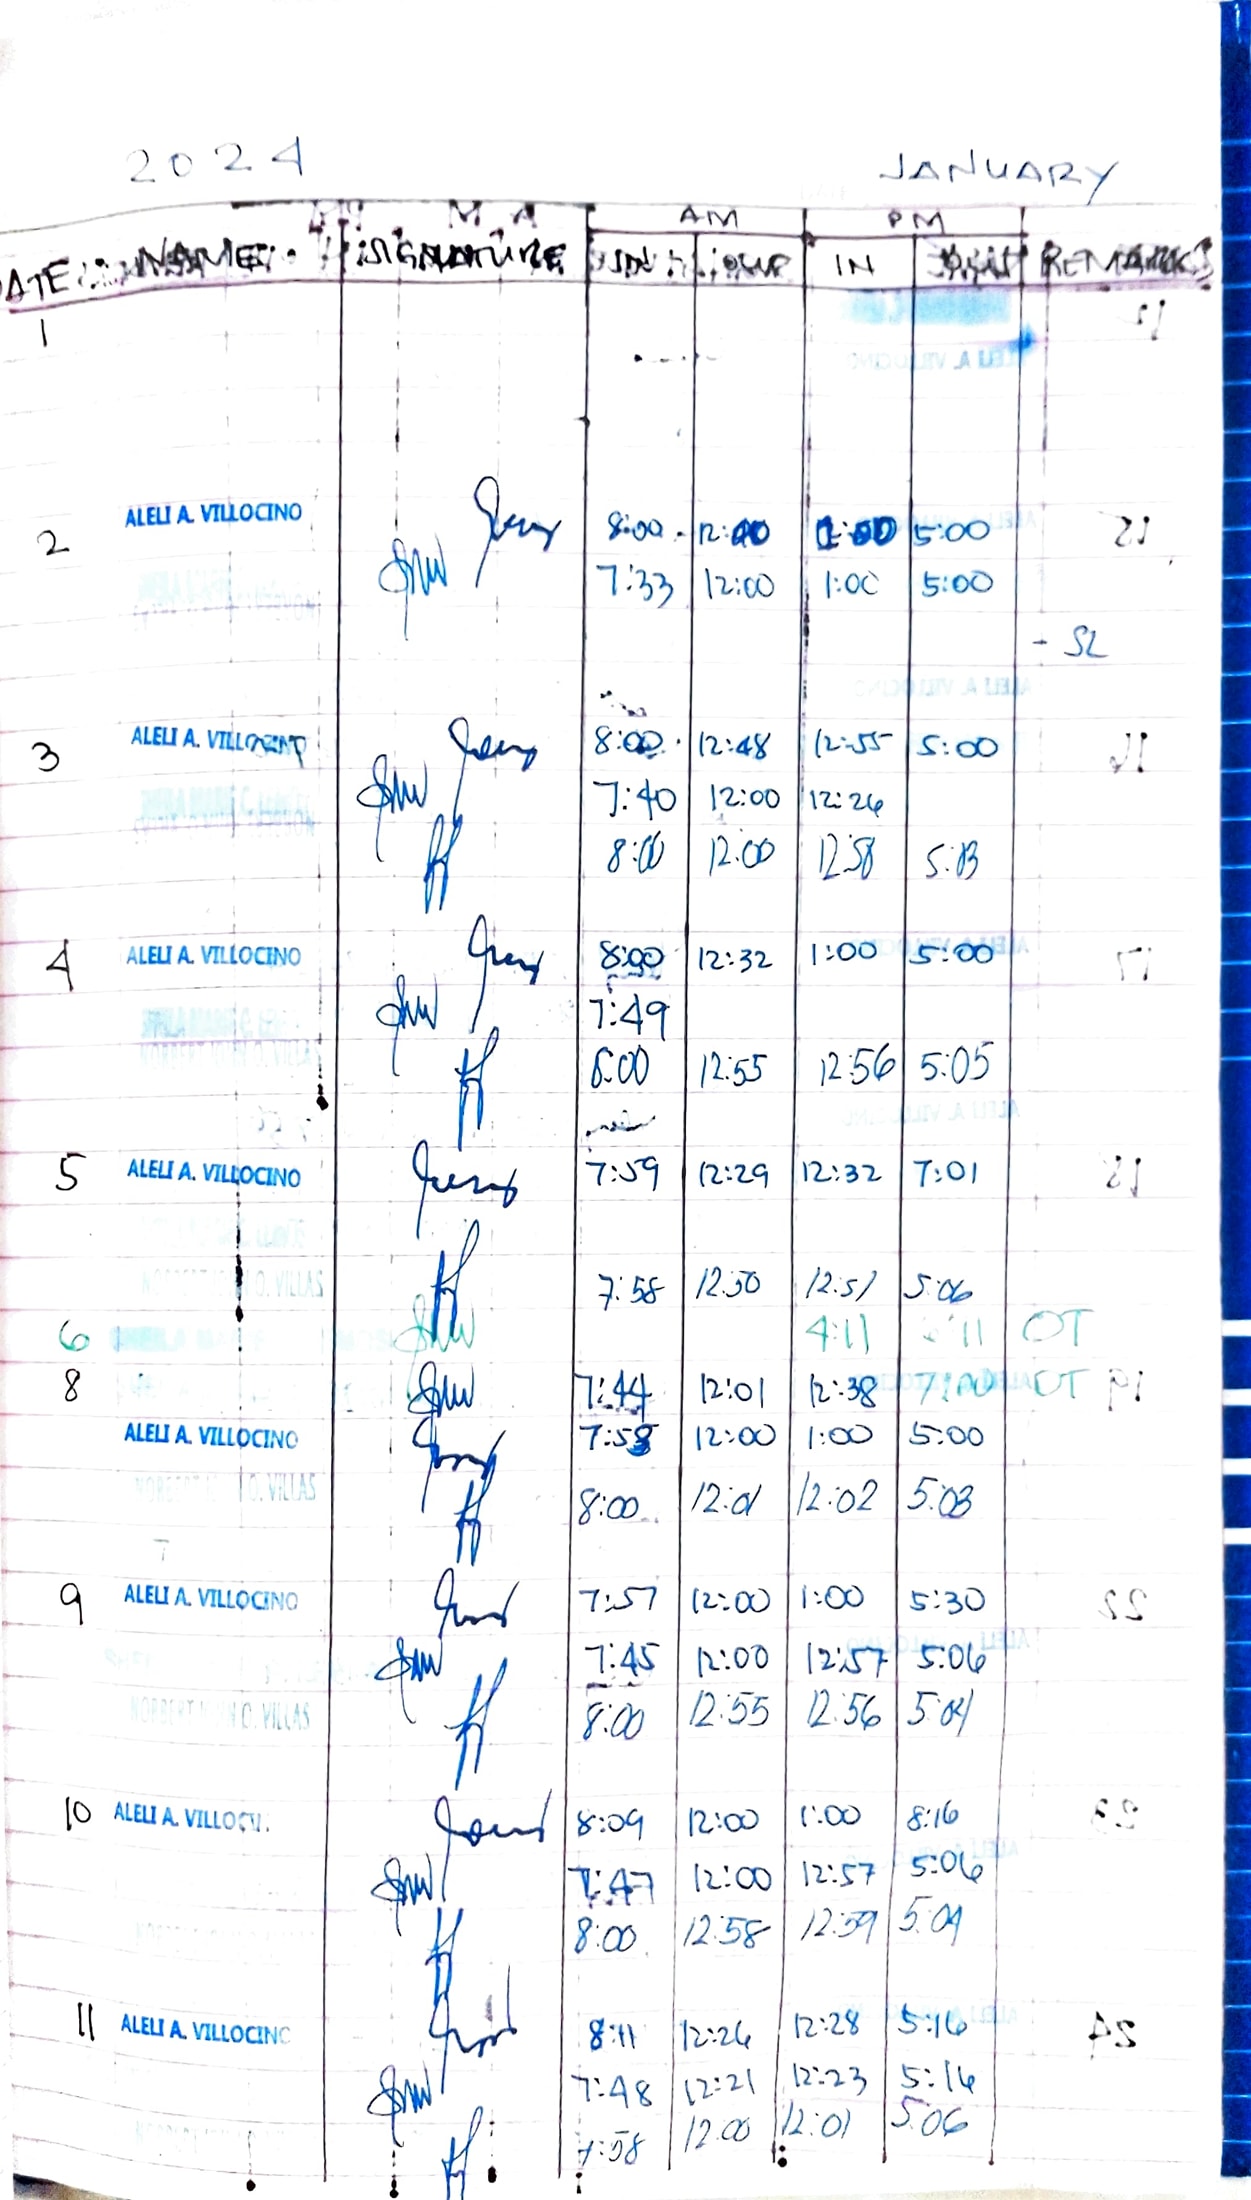 2024 JANUARY
AM PM
DATE NAME SIGNATURE IN OUT IN REMARKS
1
2 ALELI A. VILLOCINO 8:00 12:00 1:00 5:00
7:33 12:00 1:00 5:00
- SL
3 ALELI A. 8:00 12:48 12:55 5:00
7:40 12:00 12:26
8:00 12:00 12:58 5:03
4 ALELI A. VILLOCINO 8:00 12:32 1:00 5:00
7:49
8:00 12:55 12:56 5:05
5 ALELI A. VILLOCINO 7:59 12:29 12:32 7:01
7:58 12:50 12:51 5:06
6 4:11 OT
8 7:44 12:01 12:38 7:00 OT
ALELI A. VILLOCINO 7:53 12:00 1:00 5:00
8:00 12:01 12:02 5:03
9 ALELI A. VILLOCINO 7:57 12:00 1:00 5:30
7:45 12:00 12:57 5:06
8:00 12:55 12:56 5:04
10 ALELI A. 8:09 12:00 1:00 8:16
7:47 12:00 12:57 5:06
8:00 12:58 12:59 5:04
11 ALELI A. VILLOCINO 8:11 12:26 12:28 5:16
7:48 12:21 12:23 5:16
7:58 12:00 12:01 5:06